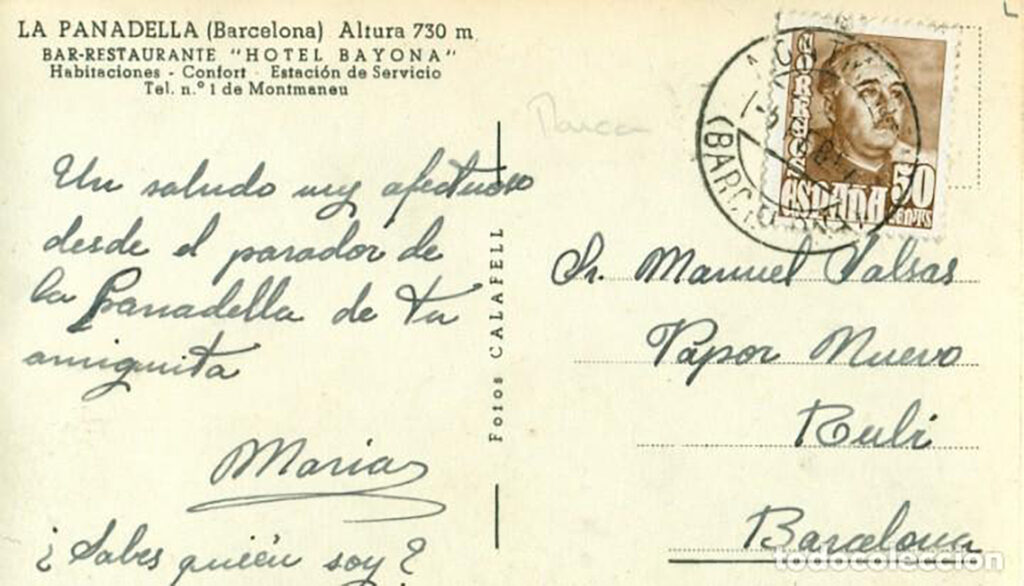 LA PANADELLA (Barcelona) Altura 730 m.
BAR-RESTAURANTE "HOTEL BAYONA"
Habitaciones - Confort - Estación de Servicio
Tel. n.º 1 de Montmaneu
Un saludo muy afectuoso
desde el parador de
la Panadella de tu
amiguita
Maria
¿Sabes quién soy?
Fotos CALAFELL
CORREOS
ESPAÑA 50
CENTS
(BARCELONA)
Sr. Manuel Valsas
Vapor Nuevo
Rubí
Barcelona
todocoleccion